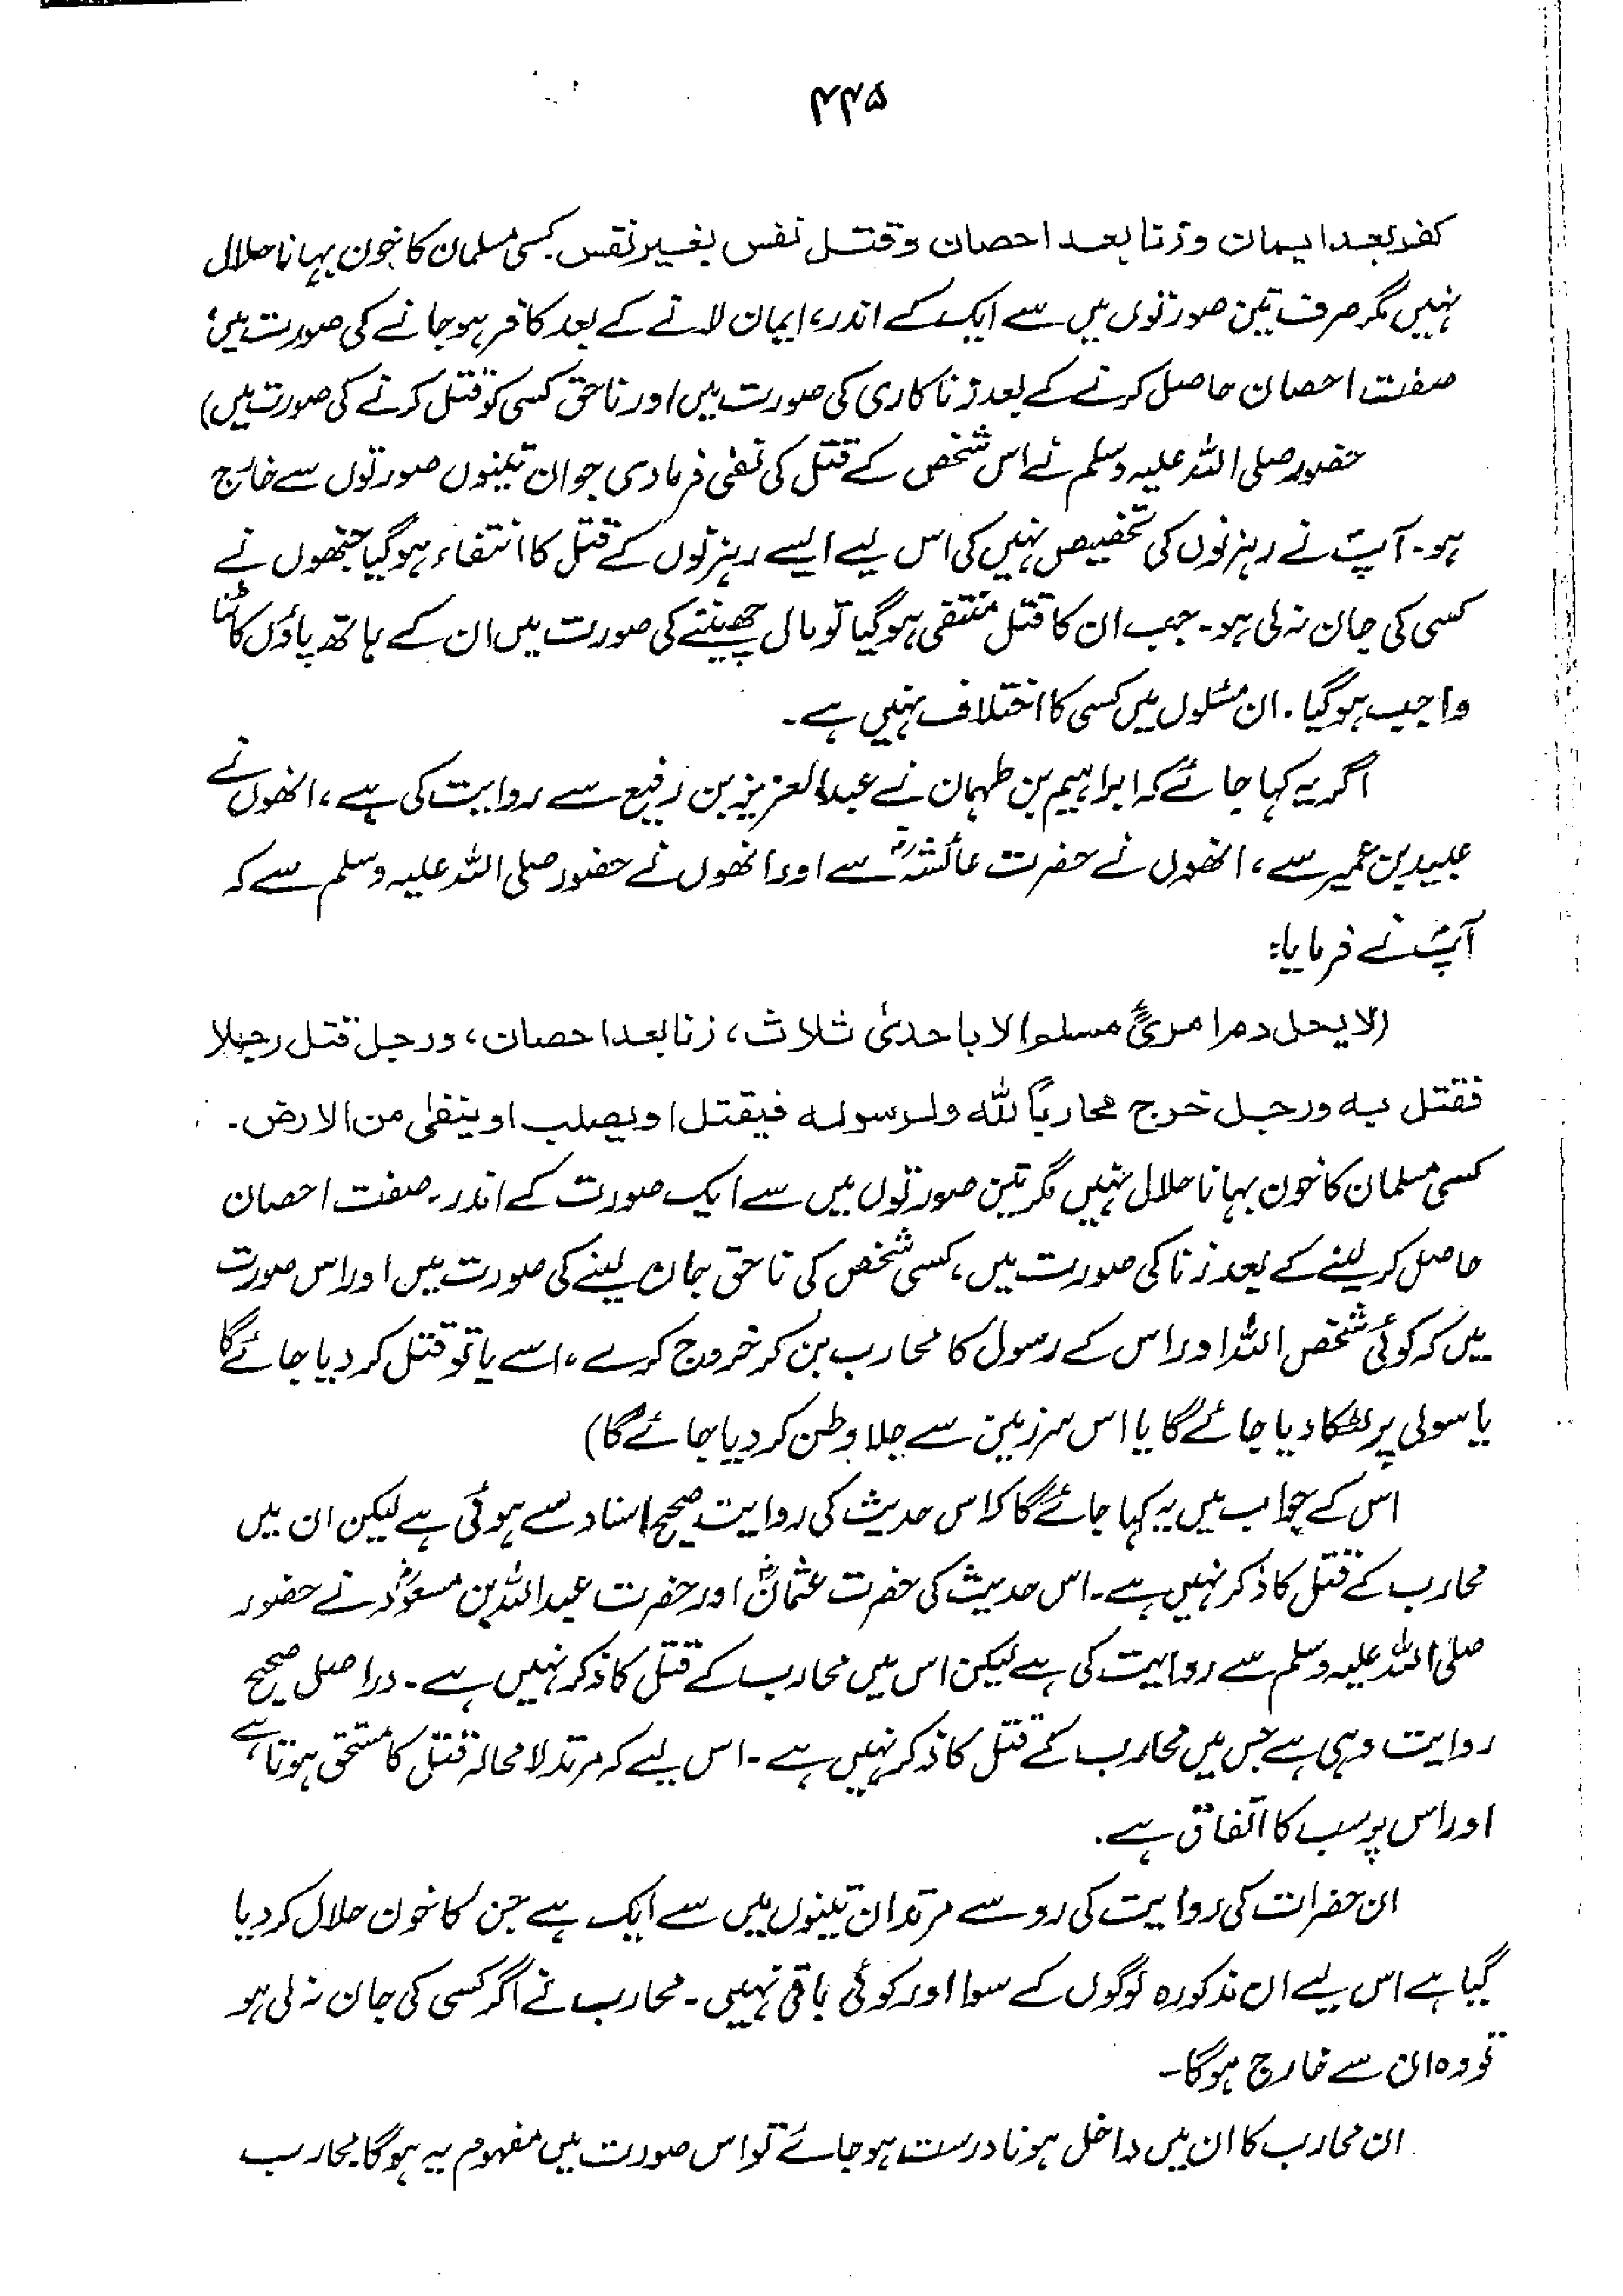 ۴۴۵
کفر بعد ایمان و زنا بعد احصان و قتل نفس بغیر نفس۔ کسی مسلمان کا خون بہانا حلال
نہیں مگر صرف تین صورتوں میں سے ایک کے اندر، ایمان لانے کے بعد کافر ہوجانے کی صورت میں،
صفت احصان حاصل کرنے کے بعد زنا کاری کی صورت میں اور ناحق کسی کو قتل کرنے کی صورت میں)
حضور صلی اللہ علیہ وسلم نے اس شخص کے قتل کی نفی فرما دی جو ان تینوں صورتوں سے خارج
ہو۔ آپؐ نے رہزنوں کی تخصیص نہیں کی اس لیے ایسے رہزنوں کے قتل کا انتفاء ہوگیا جنھوں نے
کسی کی جان نہ لی ہو۔ جب ان کا قتل منتفی ہوگیا تو مال چھیننے کی صورت میں ان کے ہاتھ پاؤں کاٹنا
واجب ہوگیا۔ ان مسئلوں میں کسی کا اختلاف نہیں ہے۔
اگر یہ کہا جائے کہ ابراہیم بن طہمان نے عبدالعزیز بن رفیع سے روایت کی ہے، انھوں نے
عبید بن عمیر سے، انھوں نے حضرت عائشہؓ سے اور انھوں نے حضور صلی اللہ علیہ وسلم سے کہ
آپؐ نے فرمایا:
(لا یحل دم امرئً مسلم الا باحدیٰ ثلاث، زنا بعد احصان، ورجل قتل رجلا
فقتل بہ ورجل خرج محارباً للہ ولرسولہ فیقتل او یصلب او ینفیٰ من الارض۔
کسی مسلمان کا خون بہانا حلال نہیں مگر تین صورتوں میں سے ایک صورت کے اندر۔ صفت احصان
حاصل کرلینے کے بعد زنا کی صورت میں، کسی شخص کی ناحق جان لینے کی صورت میں اور اس صورت
میں کہ کوئی شخص اللہ اور اس کے رسول کا محارب بن کر خروج کرے، اسے یا تو قتل کردیا جائے گا
یا سولی پر لٹکا دیا جائے گا یا اس سرزمین سے جلاوطن کردیا جائے گا)
اس کے جواب میں یہ کہا جائے گا کہ اس حدیث کی روایت صحیح اسناد سے ہوئی ہے لیکن ان میں
محارب کے قتل کا ذکر نہیں ہے۔ اس حدیث کی حضرت عثمانؓ اور حضرت عبداللہ بن مسعودؓ نے حضور
صلی اللہ علیہ وسلم سے روایت کی ہے لیکن اس میں محارب کے قتل کا ذکر نہیں ہے۔ دراصل صحیح
روایت وہی ہے جس میں محارب کے قتل کا ذکر نہیں ہے۔ اس لیے کہ مرتد لامحالہ قتل کا مستحق ہوتا ہے
اور اس پر سب کا اتفاق ہے۔
ان حضرات کی روایت کی رو سے مرتد ان تینوں میں سے ایک ہے جن کا خون حلال کردیا
گیا ہے اس لیے ان مذکورہ لوگوں کے سوا اور کوئی باقی نہیں۔ محارب نے اگر کسی کی جان نہ لی ہو
تو وہ ان سے خارج ہوگا۔
ان محارب کا ان میں داخل ہونا درست ہوجائے تو اس صورت میں مفہوم یہ ہوگا محارب